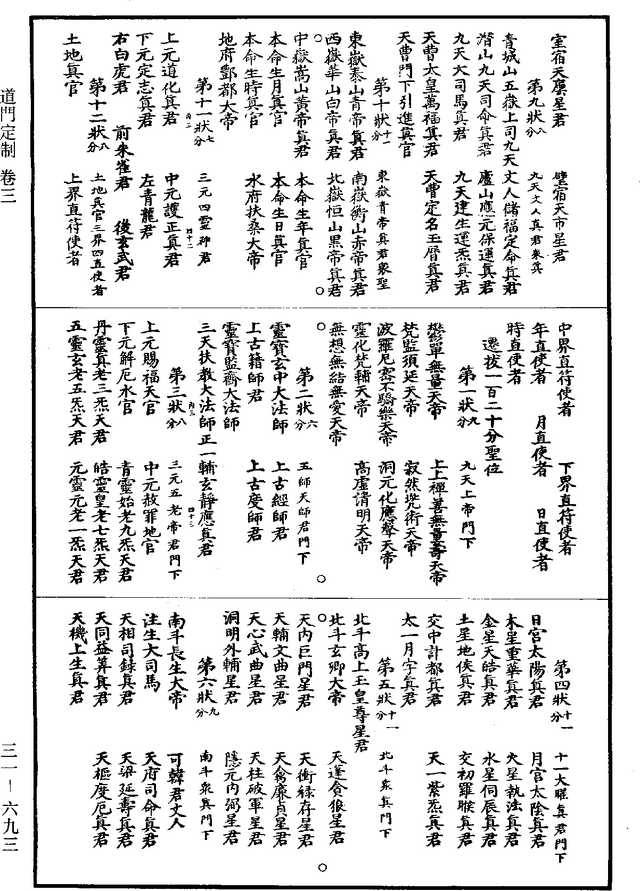 道門定制 卷三
三一－六九三
室宿天廩星君 壁宿天市星君
第九狀八分 九天丈人真君眾真
青城山五嶽上司九天丈人儲福定命真君
潛山九天司命真君 廬山應元保運真君
九天大司馬真君 九天建生運炁真君
天曹太皇萬福真君 天曹定名玉曆真君
天曹門下引進真官
第十狀十一分 東嶽青帝真君眾聖
東嶽泰山青帝真君 南嶽衡山赤帝真君
西嶽華山白帝真君 北嶽恒山黑帝真君
中嶽嵩山黃帝真君 本命生年真官
本命生月真官 本命生日真官
本命生時真官 水府扶桑大帝
地府酆都大帝
第十一狀七分 三元四靈神君
上元道化真君 中元護正真君
下元定志真君 左青龍君
右白虎君 前朱雀君 後玄武君
第十二狀八分 土地真官三界四直使者
土地真官 上界直符使者
中界直符使者 下界直符使者
年直使者 月直使者 日直使者
時直使者
遷拔一百二十分聖位
第一狀九分 九天上帝門下
鬱單無量天帝 上上禪善無量壽天帝
梵監須延天帝 寂然兜術天帝
波羅尼密不驕樂天帝 洞元化應聲天帝
靈化梵輔天帝 高虛清明天帝
無想無結無愛天帝
第二狀六分 五師天師君門下
靈寶玄中大法師 上古經師君
上古籍師君 上古度師君
靈寶監齋大法師
三天扶教大法師正一輔玄靜應真君
第三狀八分 三元五老帝君門下
上元賜福天官 中元赦罪地官
下元解厄水官 青靈始老九炁天君
丹靈真老三炁天君 皓靈皇老七炁天君
五靈玄老五炁天君 元靈元老一炁天君
第四狀十一分 十一大曜真君門下
日宮太陽真君 月宮太陰真君
木星重華真君 火星執法真君
金星天皓真君 水星伺辰真君
土星地侯真君 交初羅睺真君
交中計都真君 天一紫炁真君
太一月孛真君
第五狀十一分 北斗眾真門下
北斗高上玉皇尊星君
北斗玄卿大帝 天逢貪狼星君
天內巨門星君 天衝祿存星君
天輔文曲星君 天禽廉貞星君
天心武曲星君 天柱破軍星君
洞明外輔星君 隱元內弼星君
第六狀九分 南斗眾真門下
南斗長生大帝 可韓君丈人
注生大司馬 天府司命真君
天相司錄真君 天梁延壽真君
天同益算真君 天樞度厄真君
天機上生真君